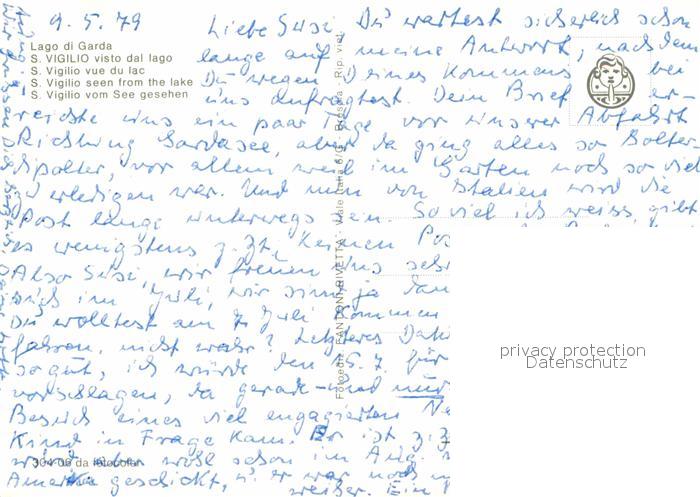 9.5.79
Lago di Garda
S. VIGILIO visto dal lago
S. Vigilio vue du lac
S. Vigilio seen from the lake
S. Vigilio vom See gesehen
Liebe Susi, Du wartest sicherlich schon
lange auf meine Antwort, nachdem
Du wegen Deines Kommens bei
uns anfragtest. Dein Brief er-
reichte uns ein paar Tage vor unserer Abfahrt
Richtung Gardasee, aber da ging alles so Polter-
dipolter, vor allem weil im Garten noch so viel
zu erledigen war. Und nun von Italien wird die
Post lange unterwegs sein. Soviel ich weiss, gibt
es wenigstens z. Zt. keinen Pos
Also Susi, wir freuen uns sehr
Dich im Juli, wir sind ja dan
Du wolltest am 7. Juli kommen
fahren, nicht wahr? Letzteres Datu
so gut, ich würde den 15.7. für
vorschlagen, da gerade und nur
Besuch eines viel engagierten Ne
Kind in Frage kam. Er ist z. Z
wird aber wohl schon im Aug. n
Amerika geschickt, er war noch n
weißer. Ein
304-06 da fotocolor
Fotoediz. FANTONI RIVETTA - Viale Italia - Brescia - Rip. viet.
privacy protection
Datenschutz